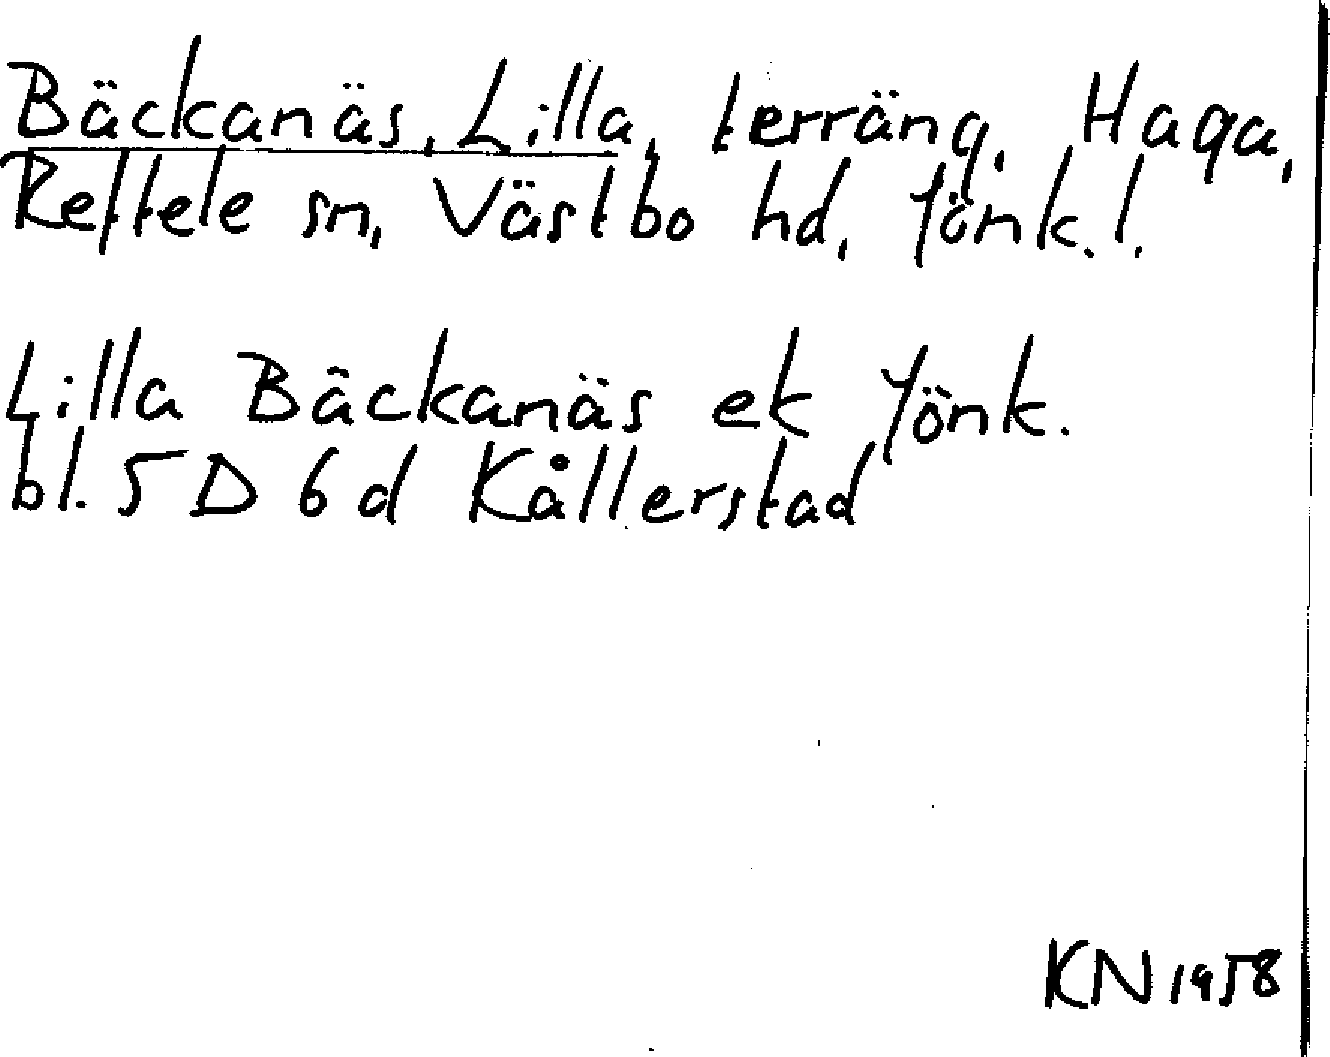 Bäckanäs, Lilla, terräng, Haga,
Reftele sn, Västbo hd, Jönk. l.
Lilla Bäckanäs ek Jönk.
bl. 5 D 6 d Kållerstad
KN 1958